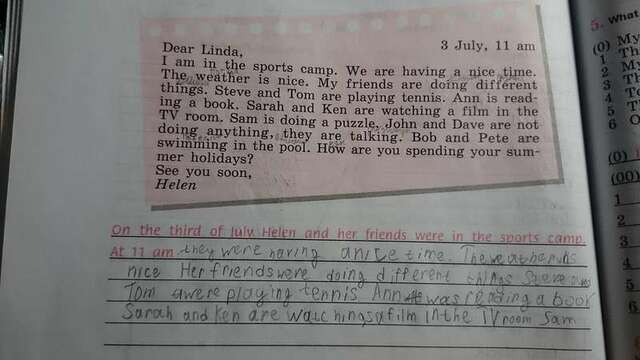 Dear Linda, 3 July, 11 am
I am in the sports camp. We are having a nice time.
The weather is nice. My friends are doing different
things. Steve and Tom are playing tennis. Ann is read-
ing a book. Sarah and Ken are watching a film in the
TV room. Sam is doing a puzzle. John and Dave are not
doing anything, they are talking. Bob and Pete are
swimming in the pool. How are you spending your sum-
mer holidays?
See you soon,
Helen
On the third of July Helen and her friends were in the sports camp.
At 11 am they were having a nice time. The weather was
nice Her friends were doing different things Steve and
Tom were playing tennis Ann was reading a book
Sarah and Ken are watching a film in the TV room Sam
5. What
(0) My
1 Th
2 My
3 T
4 To
5 T
6 O
(0) I
(00)
1
2
3
4
5
6